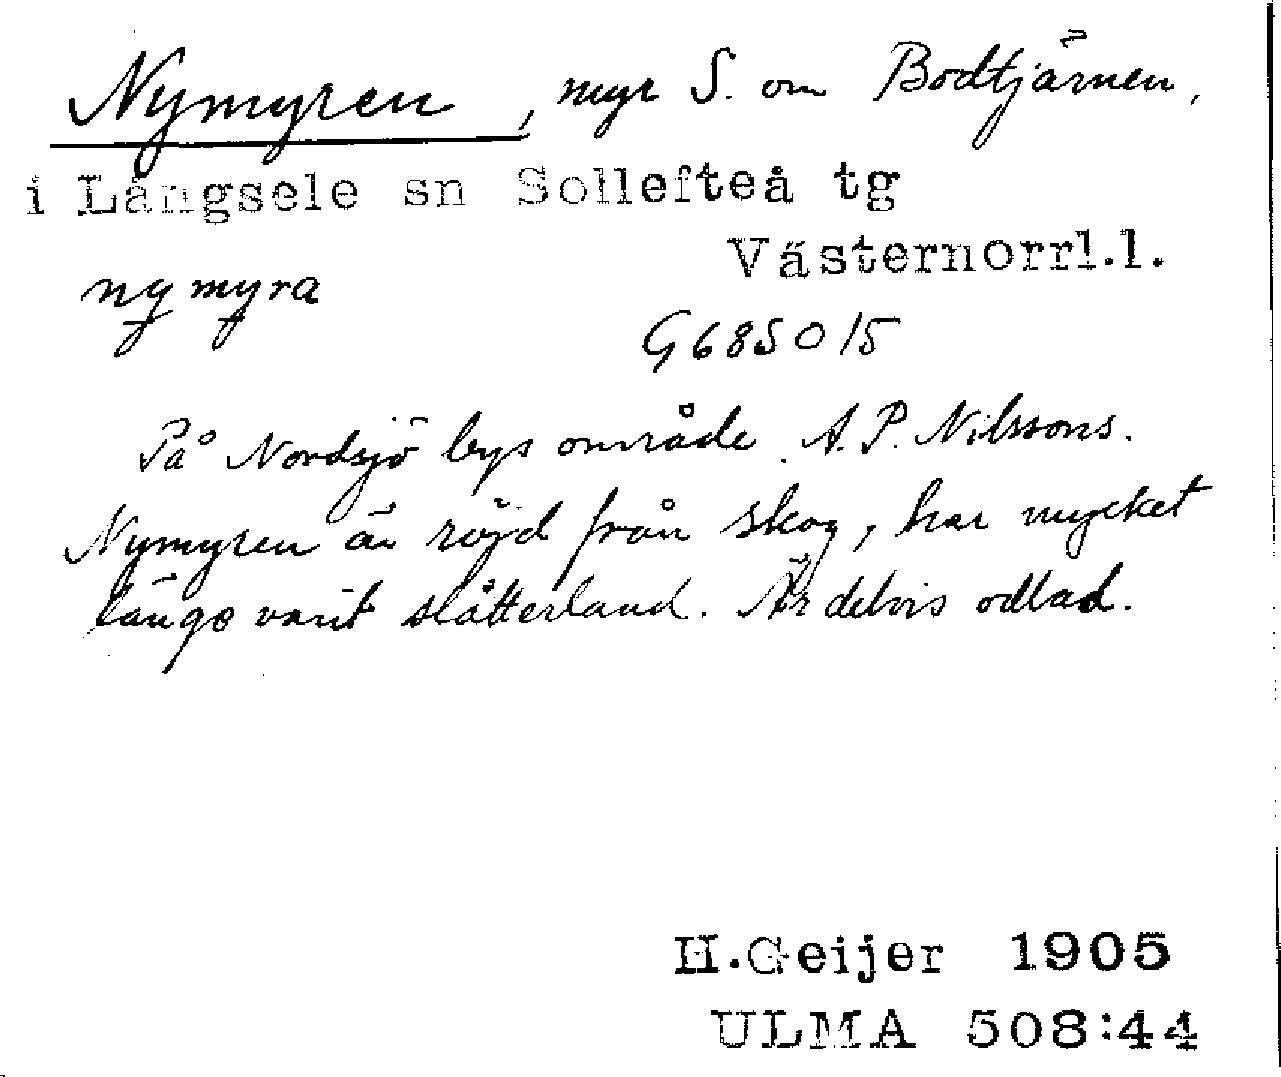 Nymyren, myr S. om Bodtjärnen,
i Långsele sn Sollefteå tg
Västernorrl.l.
nymyra
G 685015
På Nordsjö bys område. A. P. Nilssons.
Nymyren är röjd från skog, har mycket
länge varit slåtterland. Är delvis odlad.
H.Geijer 1905
ULMA 508:44